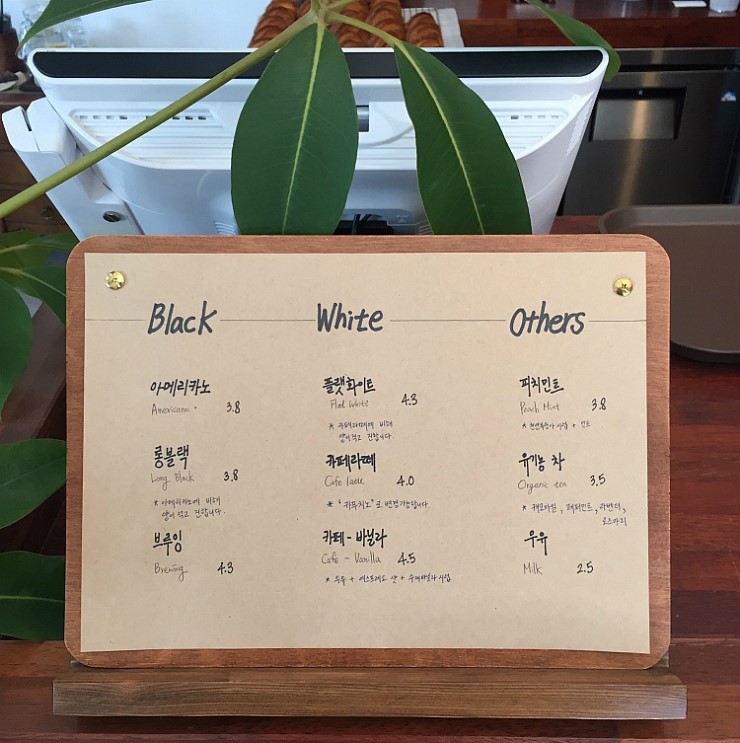 Black
아메리카노
Americano
3.8
롱블랙
Long Black
3.8
* 아메리카노에 비해
양이 적고 진합니다.
브루잉
Brewing
4.3
White
플랫화이트
Flat White
4.3
* 카페라떼에 비해
양이 적고 진합니다.
카페라떼
Cafe latte
4.0
* "카푸치노"로 변경가능합니다.
카페-바닐라
Cafe - Vanilla
4.5
* 우유 + 에스프레소 샷 + 수제바닐라 시럽
Others
피치민트
Peach Mint
3.8
* 천연복숭아 시럽 + 민트
유기농 차
Organic tea
3.5
* 캐모마일, 페퍼민트, 라벤더,
로즈마리
우유
Milk
2.5